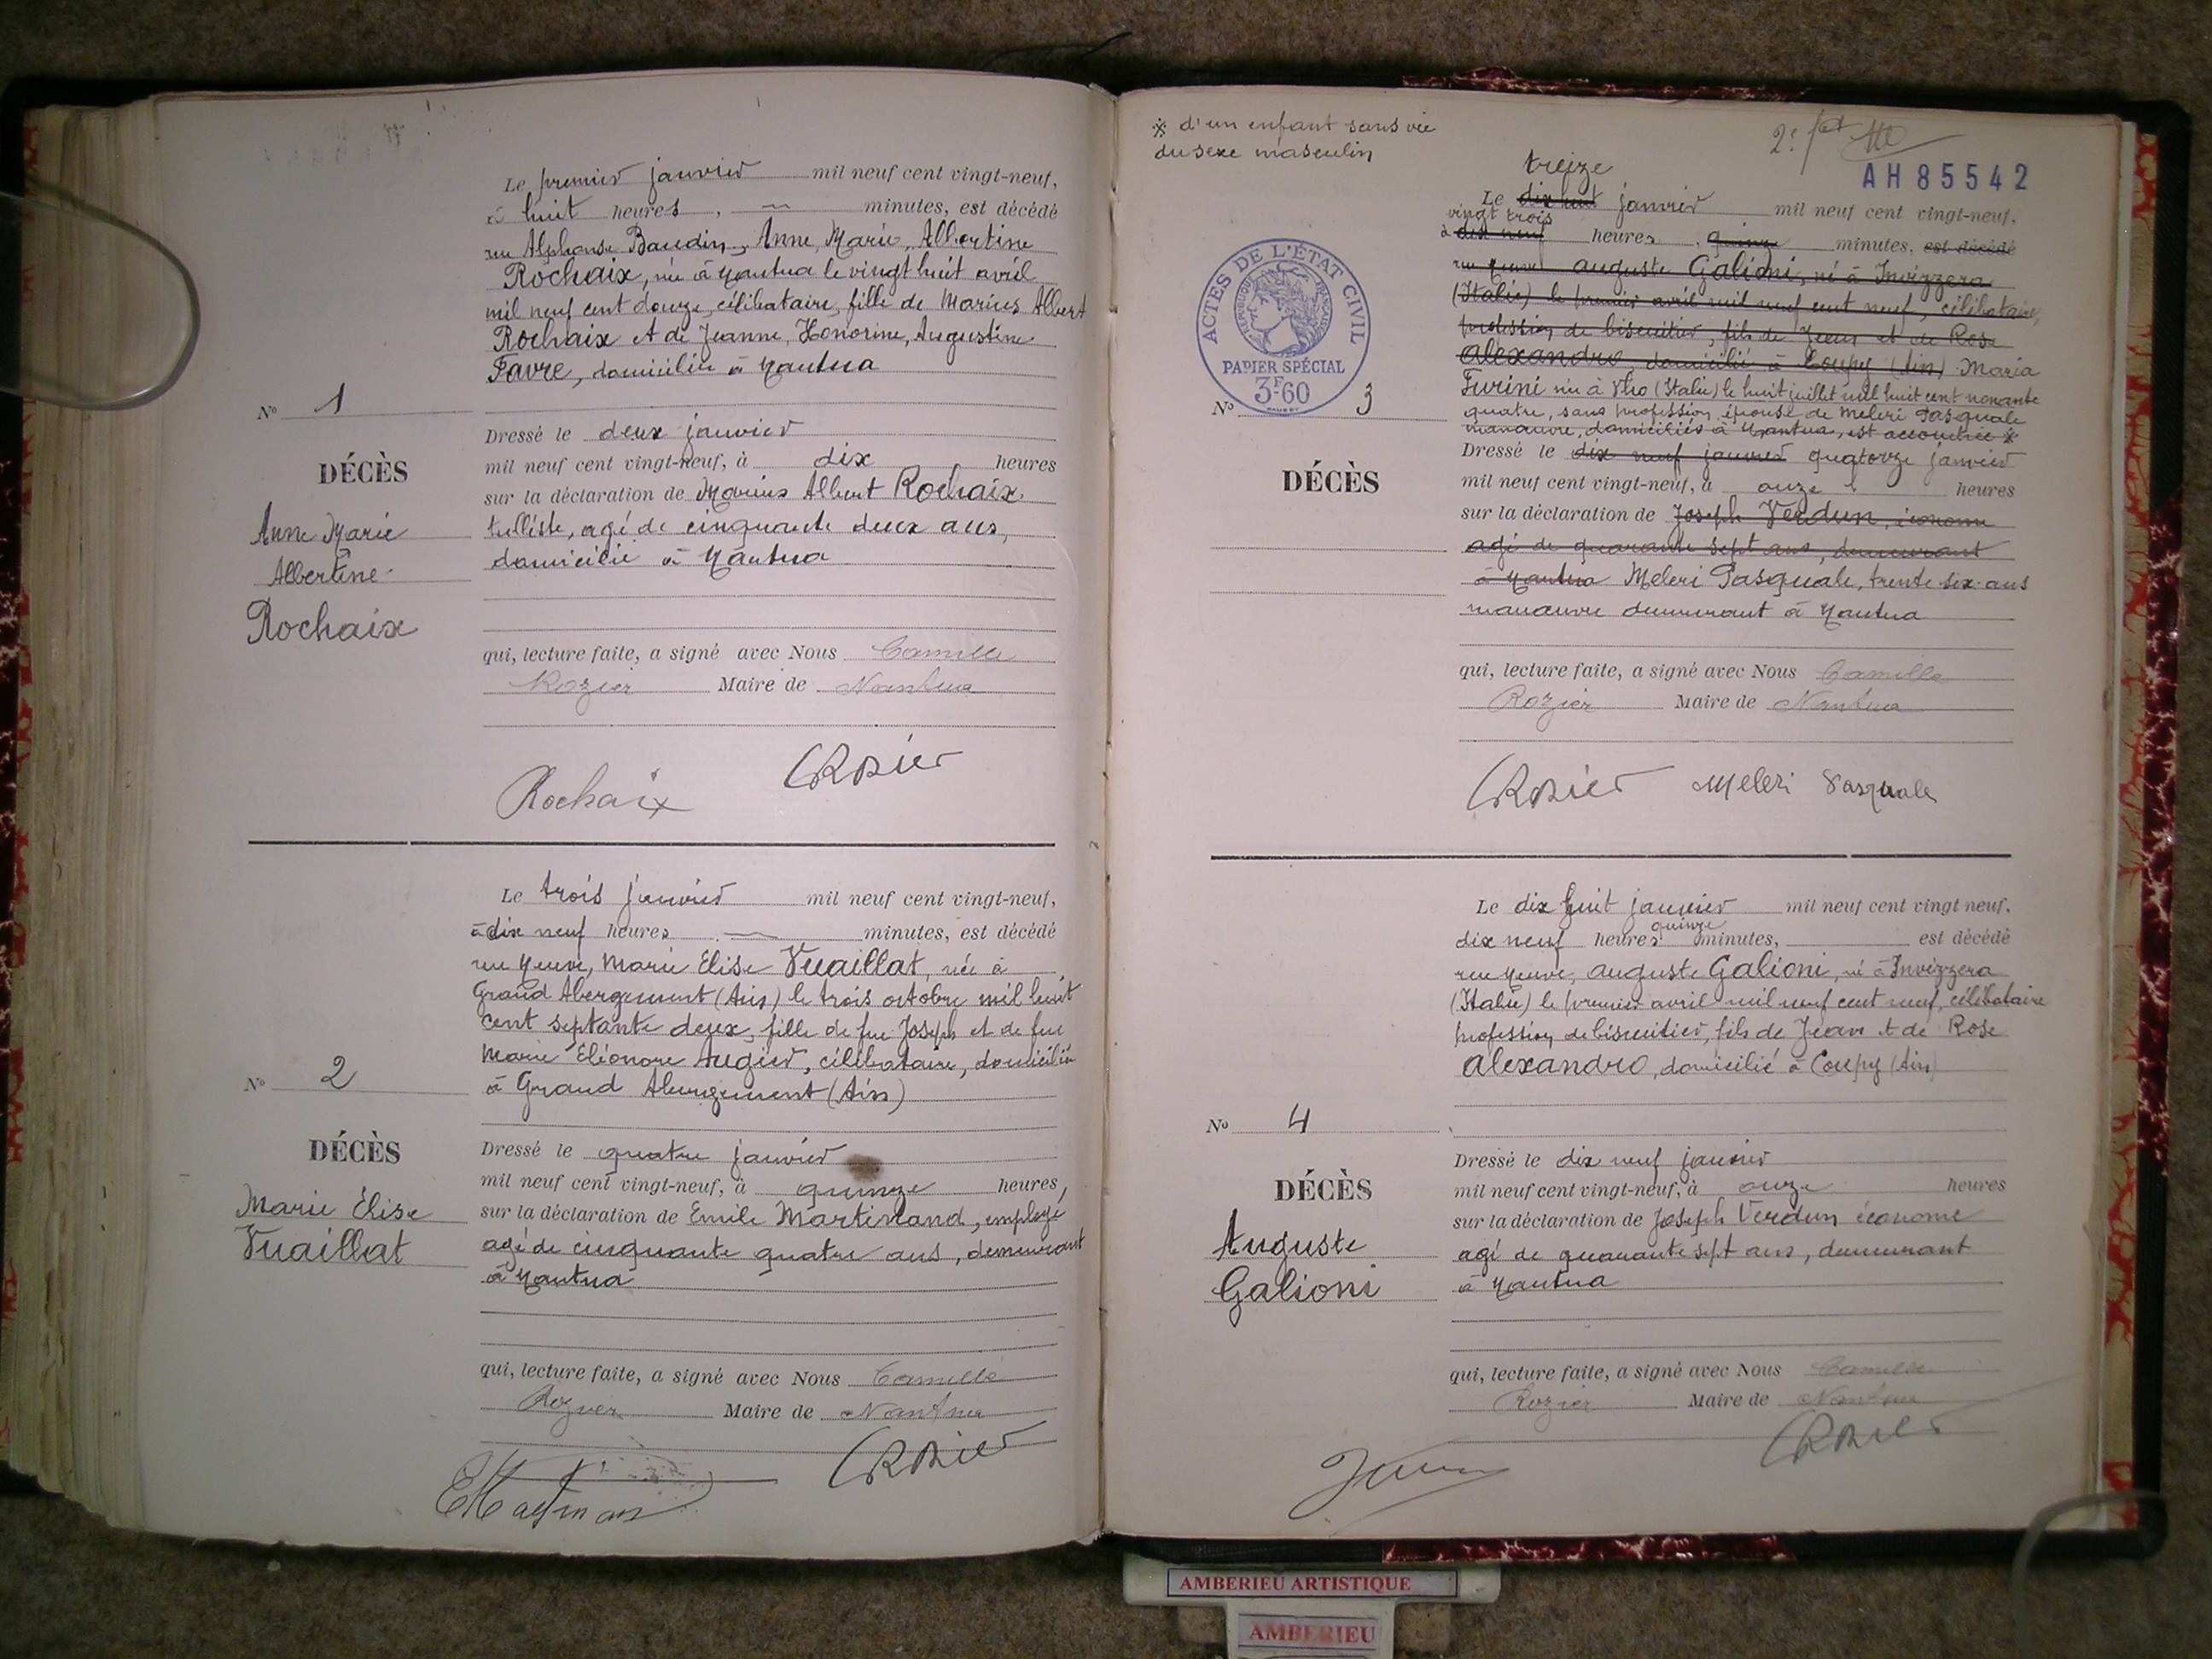 Le premier janvier mil neuf cent vingt-neuf,
à huit heures, — minutes, est décédé
rue Alphonse Baudin, Anne, Marie, Albertine
Rochaix, née à Nantua le vingt huit avril
mil neuf cent douze, célibataire, fille de Marius Albert
Rochaix et de Jeanne, Honorine, Augustine
Favre, domiciliée à Nantua
No 1
Dressé le deux janvier
mil neuf cent vingt-neuf, à dix heures
DÉCÈS
sur la déclaration de Marius Albert Rochaix
Anne Marie
Albertine
Rochaix
tulliste, agé de cinquante deux ans,
domicilié à Nantua
qui, lecture faite, a signé avec Nous Camille
Rozier Maire de Nantua
Rochaix CRozier
Le trois janvier mil neuf cent vingt-neuf,
à dix neuf heures — minutes, est décédé
rue Neuve, Marie Elise Vuaillat, née à
Grand Abergement (Ain) le trois octobre mil huit
cent septante deux, fille de feu Joseph et de feue
Marie Eléonore Augier, célibataire, domiciliée
à Grand Abergement (Ain)
No 2
DÉCÈS
Marie Élise
Vuaillat
Dressé le quatre janvier
mil neuf cent vingt-neuf, à quinze heures,
sur la déclaration de Emile Martinand, employé
agé de cinquante quatre ans, demeurant
à Nantua
qui, lecture faite, a signé avec Nous Camille
Rozier Maire de Nantua
CRozier
※ d'un enfant sans vie
du sexe masculin
AH85542
treize
Le dix huit janvier mil neuf cent vingt-neuf.
vingt trois
à dix neuf heures, quinze minutes, est décédé
rue Neuve auguste Galioni, né à Invizzera
(Italie) le premier avril mil neuf cent neuf, célibataire,
profession de biscuitier, fils de Jean et de Rose
Alexandro, domicilié à Coupy (Ain) Maria
Furini née à Vho (Italie) le huit juillet mil huit cent nonante
quatre, sans profession, épouse de Meleri Pasquale
manœuvre, domiciliés à Nantua, est accouchée ※
ACTES DE L'ÉTAT CIVIL
RÉPUBLIQUE FRANÇAISE
PAPIER SPÉCIAL
3F60
No 3
DÉCÈS
Dressé le dix neuf janvier quatorze janvier
mil neuf cent vingt-neuf, à onze heures
sur la déclaration de Joseph Verdun, économe
agé de quarante sept ans, demeurant
à Nantua Meleri Pasquale, trente six ans
manœuvre demeurant à Nantua
qui, lecture faite, a signé avec Nous Camille
Rozier Maire de Nantua
CRozier Meleri Pasquale
Le dix huit janvier mil neuf cent vingt neuf.
quinze
dix neuf heures minutes, est décédé
rue Neuve, auguste Galioni, né à Invizzera
(Italie) le premier avril mil neuf cent neuf, célibataire
profession de biscuitier, fils de Jean et de Rose
Alexandro, domicilié à Coupy (Ain)
No 4
DÉCÈS
Auguste
Galioni
Dressé le dix neuf janvier
mil neuf cent vingt-neuf, à onze heures
sur la déclaration de Joseph Verdun économe
agé de quarante sept ans, demeurant
à Nantua
qui, lecture faite, a signé avec Nous Camille
Rozier Maire de Nantua
CRozier
AMBERIEU ARTISTIQUE
AMBERIEU